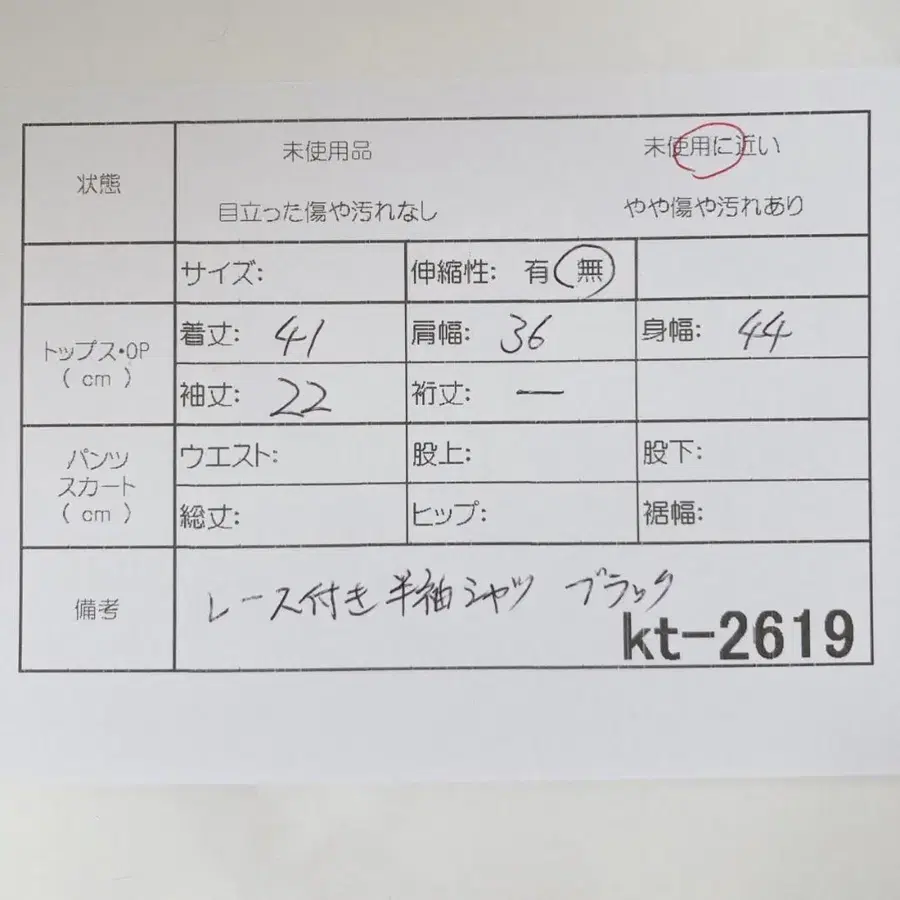 状態 未使用品 未使用に近い
目立った傷や汚れなし やや傷や汚れあり
サイズ: 伸縮性: 有 無
トップス・OP
( cm )
着丈: 41 肩幅: 36 身幅: 44
袖丈: 22 裄丈: ー
パンツ
スカート
( cm )
ウエスト: 股上: 股下:
総丈: ヒップ: 裾幅:
備考 レース付き半袖シャツ ブラック
kt-2619